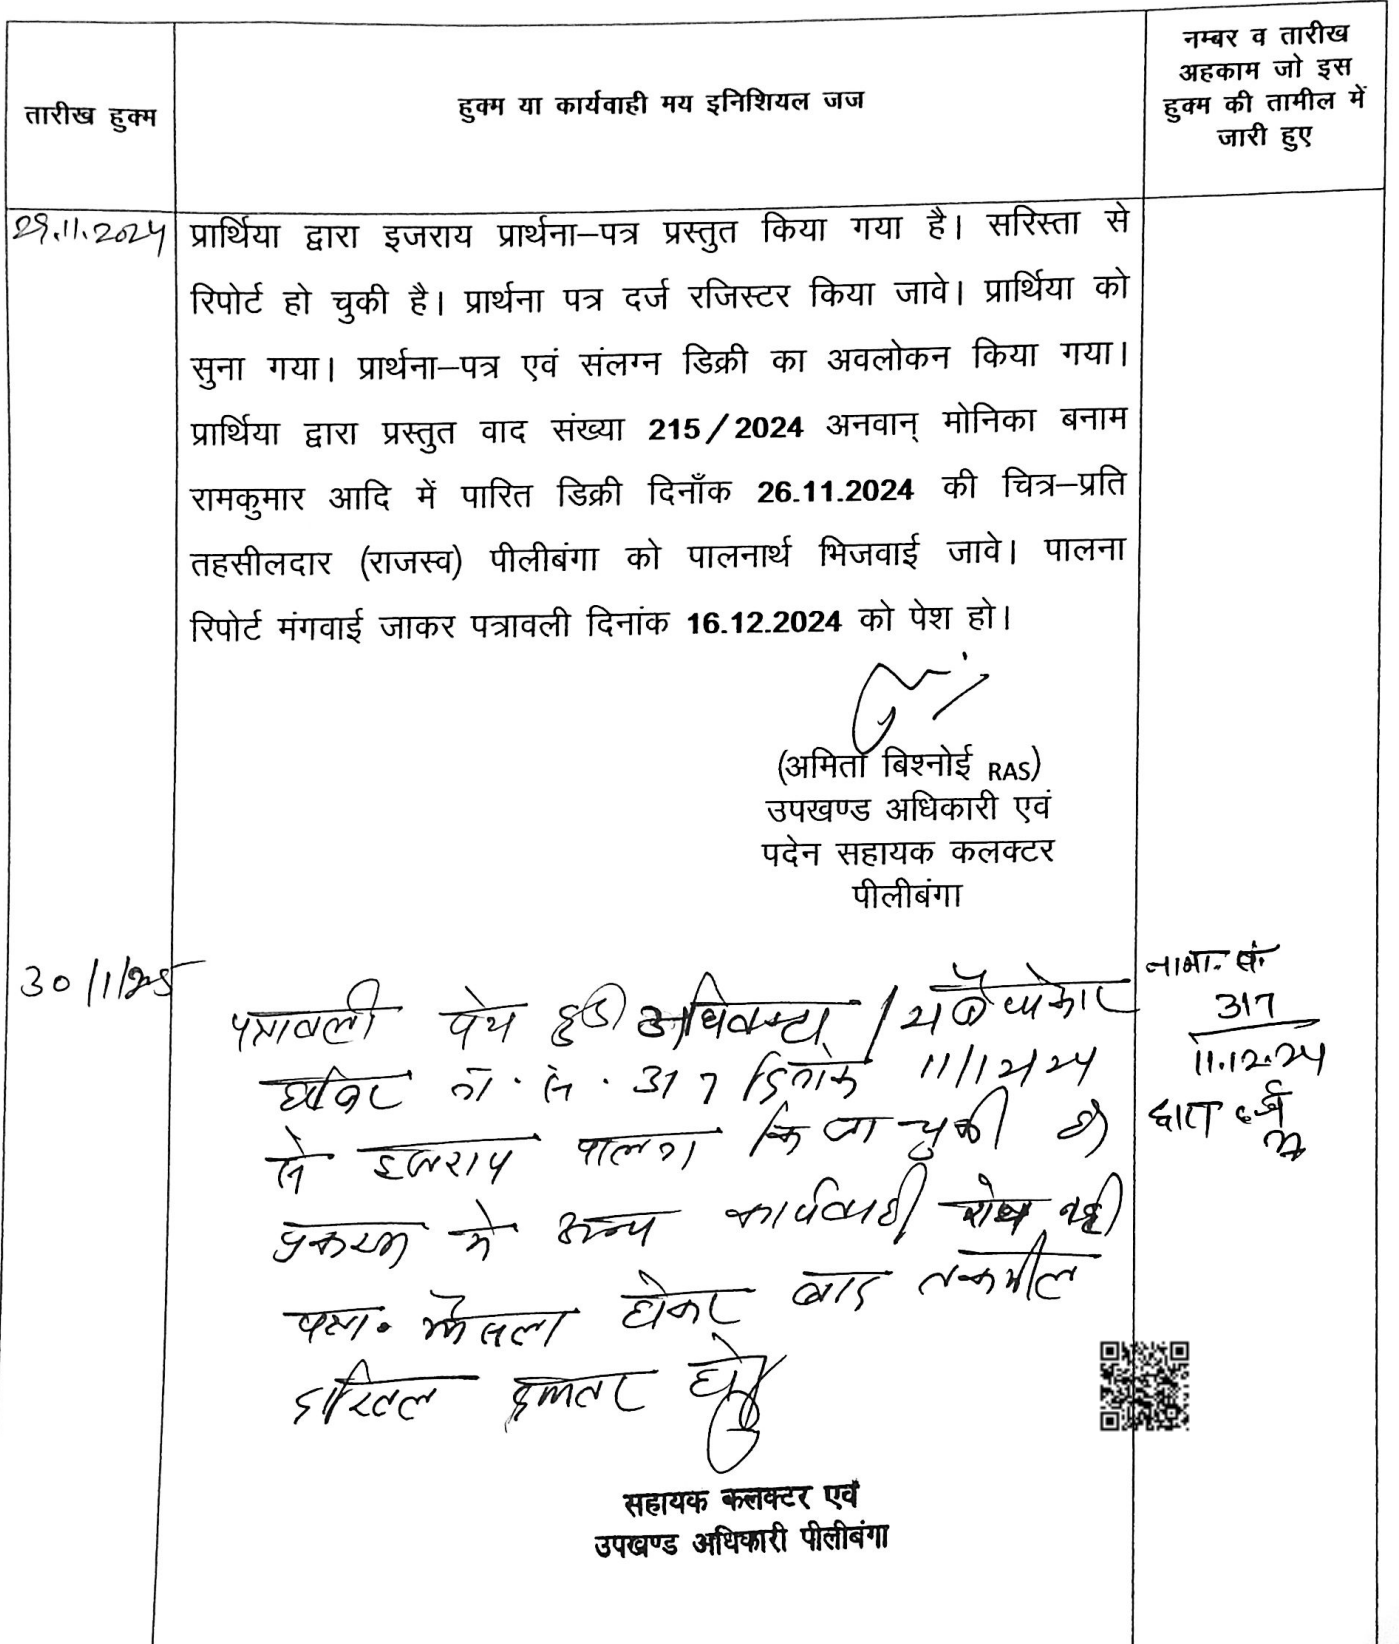 तारीख हुक्म
हुक्म या कार्यवाही मय इनिशियल जज
नम्बर व तारीख
अहकाम जो इस
हुक्म की तामील में
जारी हुए
29.11.2024
प्रार्थिया द्वारा इजराय प्रार्थना–पत्र प्रस्तुत किया गया है। सरिस्ता से
रिपोर्ट हो चुकी है। प्रार्थना पत्र दर्ज रजिस्टर किया जावे। प्रार्थिया को
सुना गया। प्रार्थना–पत्र एवं संलग्न डिक्री का अवलोकन किया गया।
प्रार्थिया द्वारा प्रस्तुत वाद संख्या 215/2024 अनवान् मोनिका बनाम
रामकुमार आदि में पारित डिक्री दिनाँक 26.11.2024 की चित्र–प्रति
तहसीलदार (राजस्व) पीलीबंगा को पालनार्थ भिजवाई जावे। पालना
रिपोर्ट मंगवाई जाकर पत्रावली दिनांक 16.12.2024 को पेश हो।
(अमिता बिश्नोई RAS)
उपखण्ड अधिकारी एवं
पदेन सहायक कलक्टर
पीलीबंगा
30/1/25
पत्रावली पेश हुई
317 दिनांक 11/12/24
से इजराय पालना कि जा चुकी है
प्रकरण मे अन्य कार्यवाही शेष नही
पत्रा. फैसला होकर बाद तकमील
दाखिल दफ्तर हो
नामा. सं.
317
11.12.24
द्वारा दर्ज
सहायक कलक्टर एवं
उपखण्ड अधिकारी पीलीबंगा